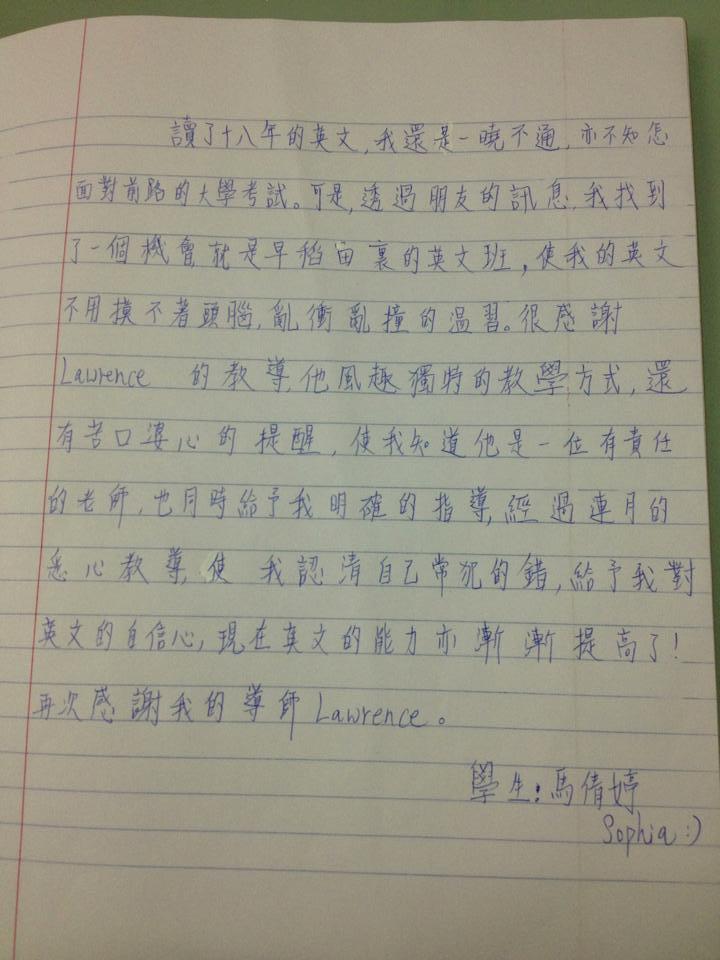 讀了十八年的英文，我還是一曉不通，亦不知怎
面對前路的大學考試。可是，透過朋友的訊息，我找到
了一個機會就是早稻田裏的英文班，使我的英文
不用摸不著頭腦，亂衝亂撞的温習。很感謝
Lawrence 的教導，他風趣獨特的教學方式，還
有苦口婆心的提醒，使我知道他是一位有責任
的老師，也同時給予我明確的指導，經過連月的
悉心教導，使我認清自己常犯的錯，給予我對
英文的自信心，現在英文的能力亦漸漸提高了！
再次感謝我的導師Lawrence。
學生：馬倩婷
Sophia :)